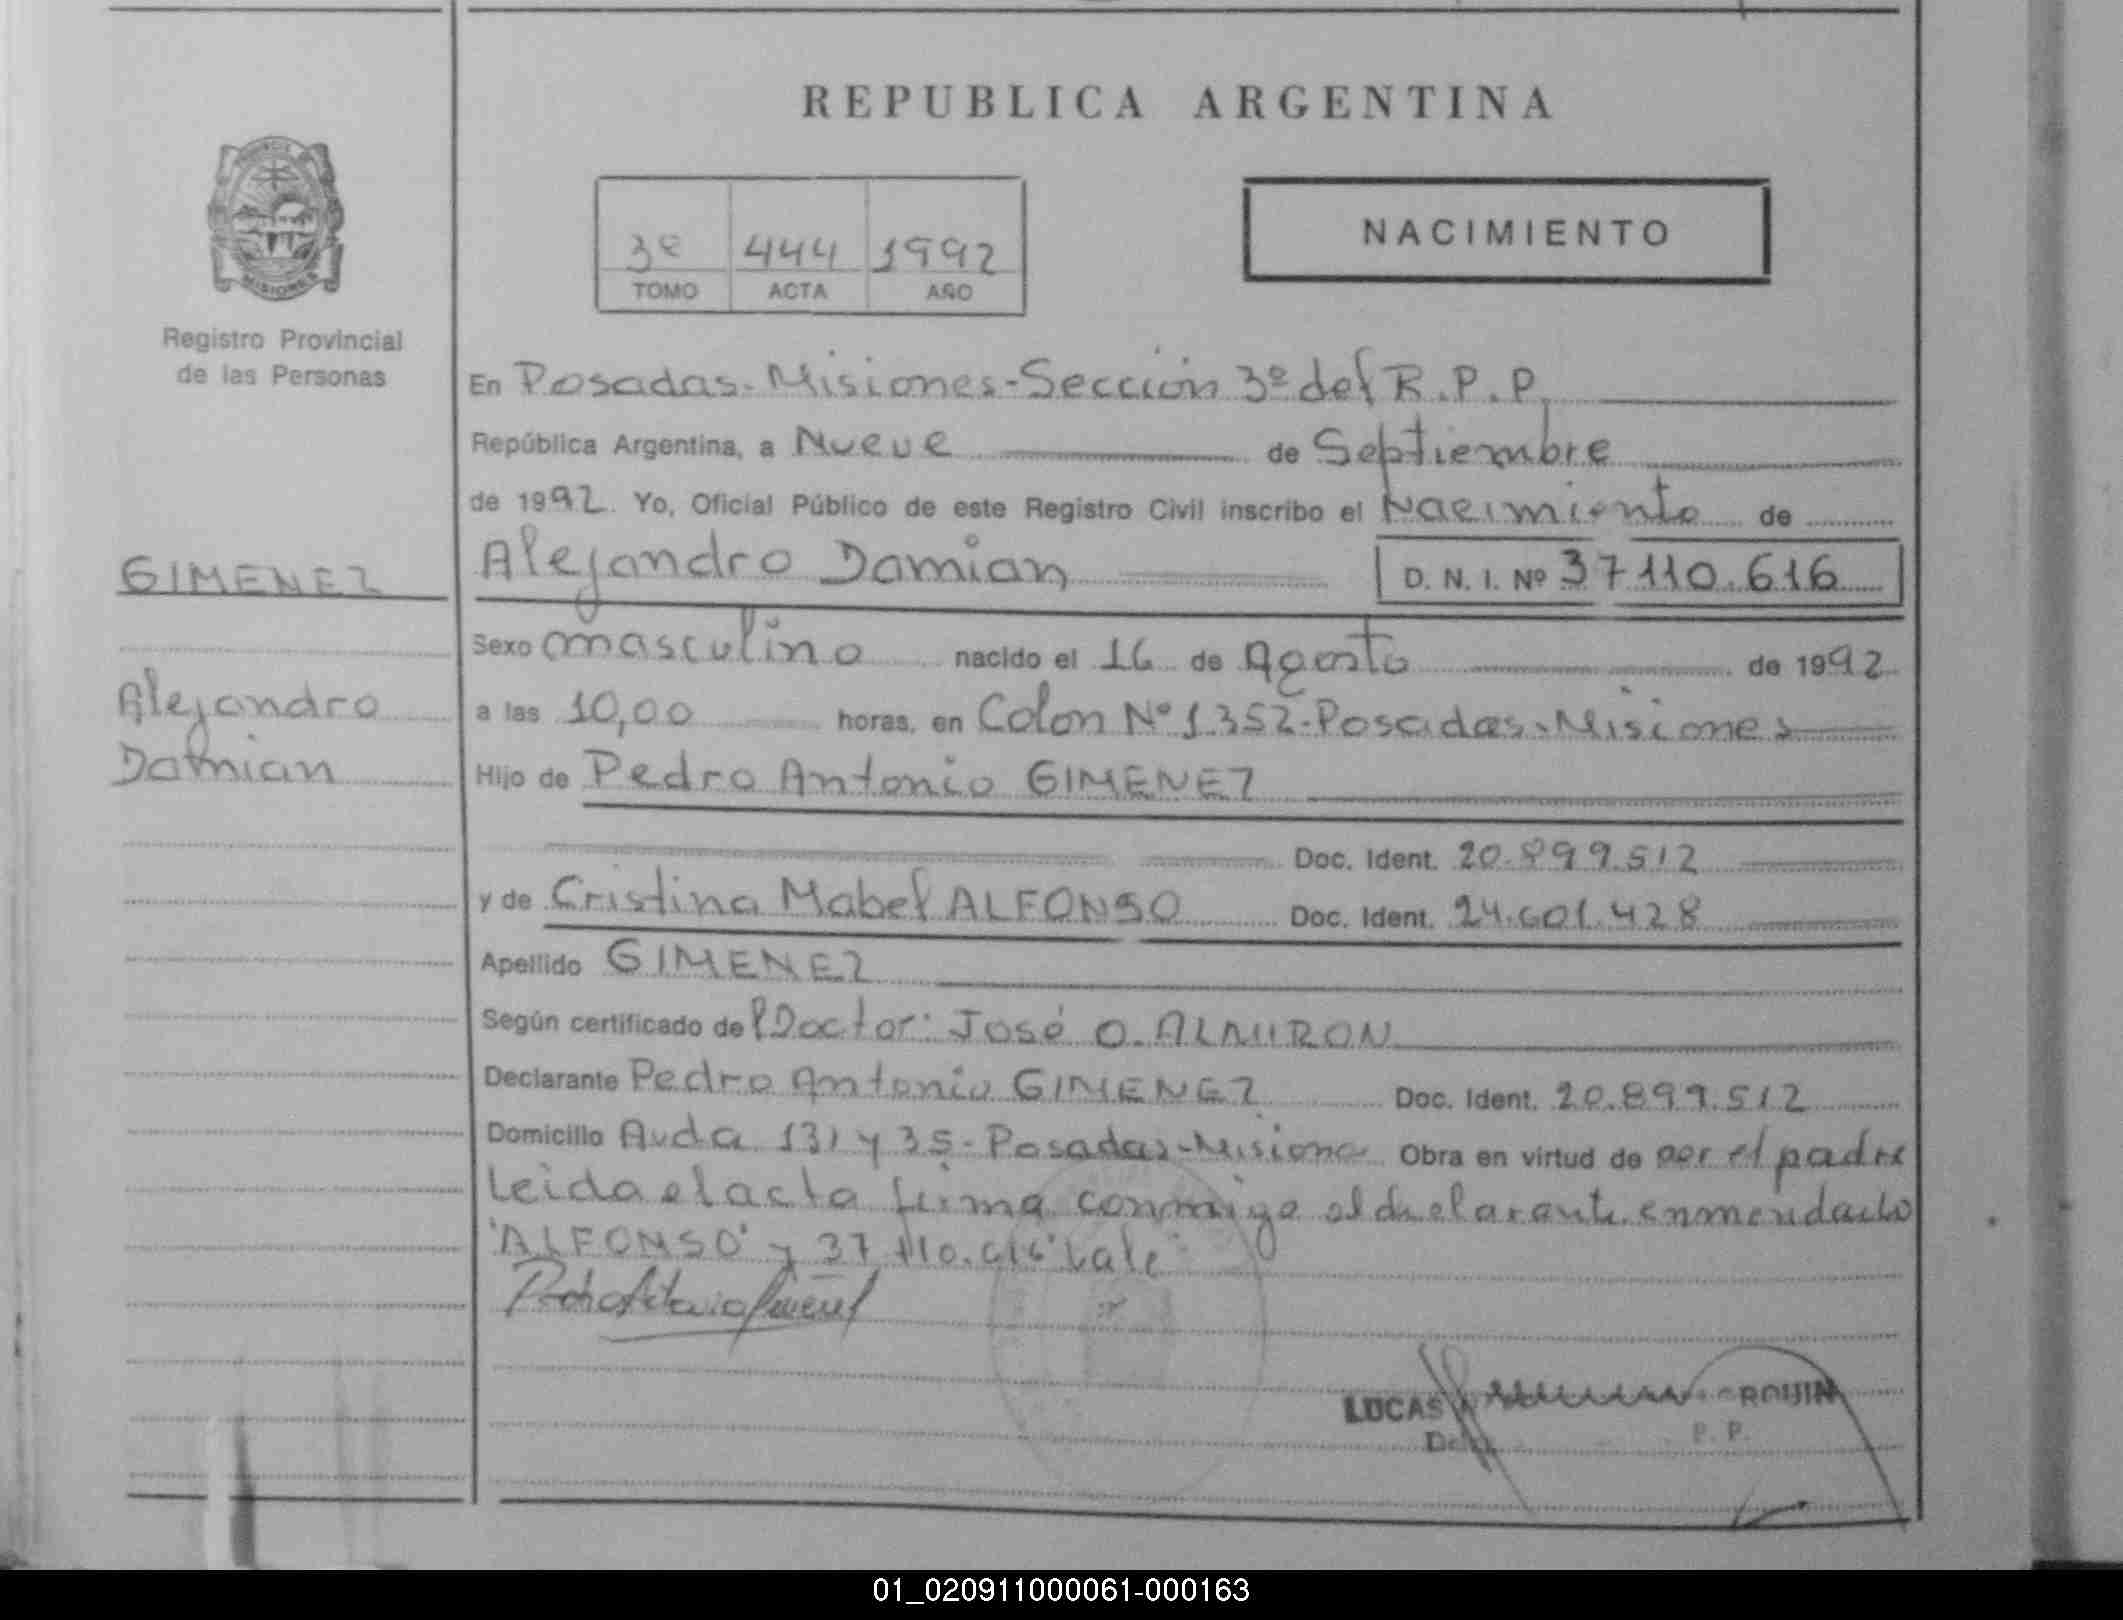 REPUBLICA ARGENTINA
PROVINCIA
MISIONES
NACIMIENTO
3º 444 1992
TOMO ACTA AÑO
Registro Provincial
de las Personas
En Posadas-Misiones-Sección 3º del R.P.P.
República Argentina, a Nueve de Septiembre
de 1992. Yo, Oficial Público de este Registro Civil inscribo el Nacimiento de
GIMENEZ
Alejandro Damian D. N. I. Nº 37110.616
Sexo masculino nacido el 16 de Agosto de 1992
Alejandro
a las 10,00 horas, en Colon Nº 1.352-Posadas-Misiones
Damian
Hijo de Pedro Antonio GIMENEZ
Doc. Ident. 20.899.512
y de Cristina Mabel ALFONSO Doc. Ident. 24.601.428
Apellido GIMENEZ
Según certificado del Doctor: José O. ALMIRON
Declarante Pedro Antonio GIMENEZ Doc. Ident. 20.899.512
Domicilio Avda 131 y 35-Posadas-Misiones Obra en virtud de ser el padre
leida el acta firma conmigo el declarante. enmendado
"ALFONSO" y 37 110.616 "Vale"
LUCAS
P. P.
01_020911000061-000163